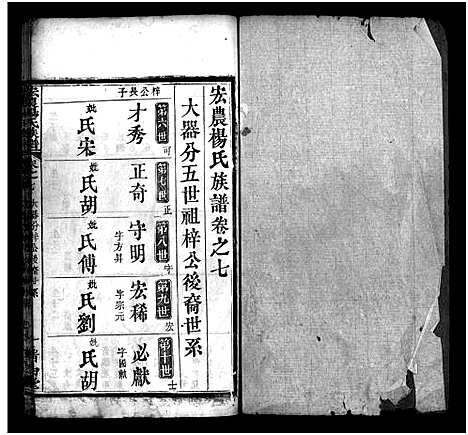 宏農楊氏族譜卷之七
大器分五世祖梓公後裔世系
梓公長子
第六世 可
才秀
妣氏宋
第七世 正
正奇
妣氏胡
第八世 守
守明
字方昇
妣氏傅
第九世 宏
宏稀
字宗元
妣氏劉
第十世 士
必獻
字國獻
妣氏胡
大器分梓公後裔世系